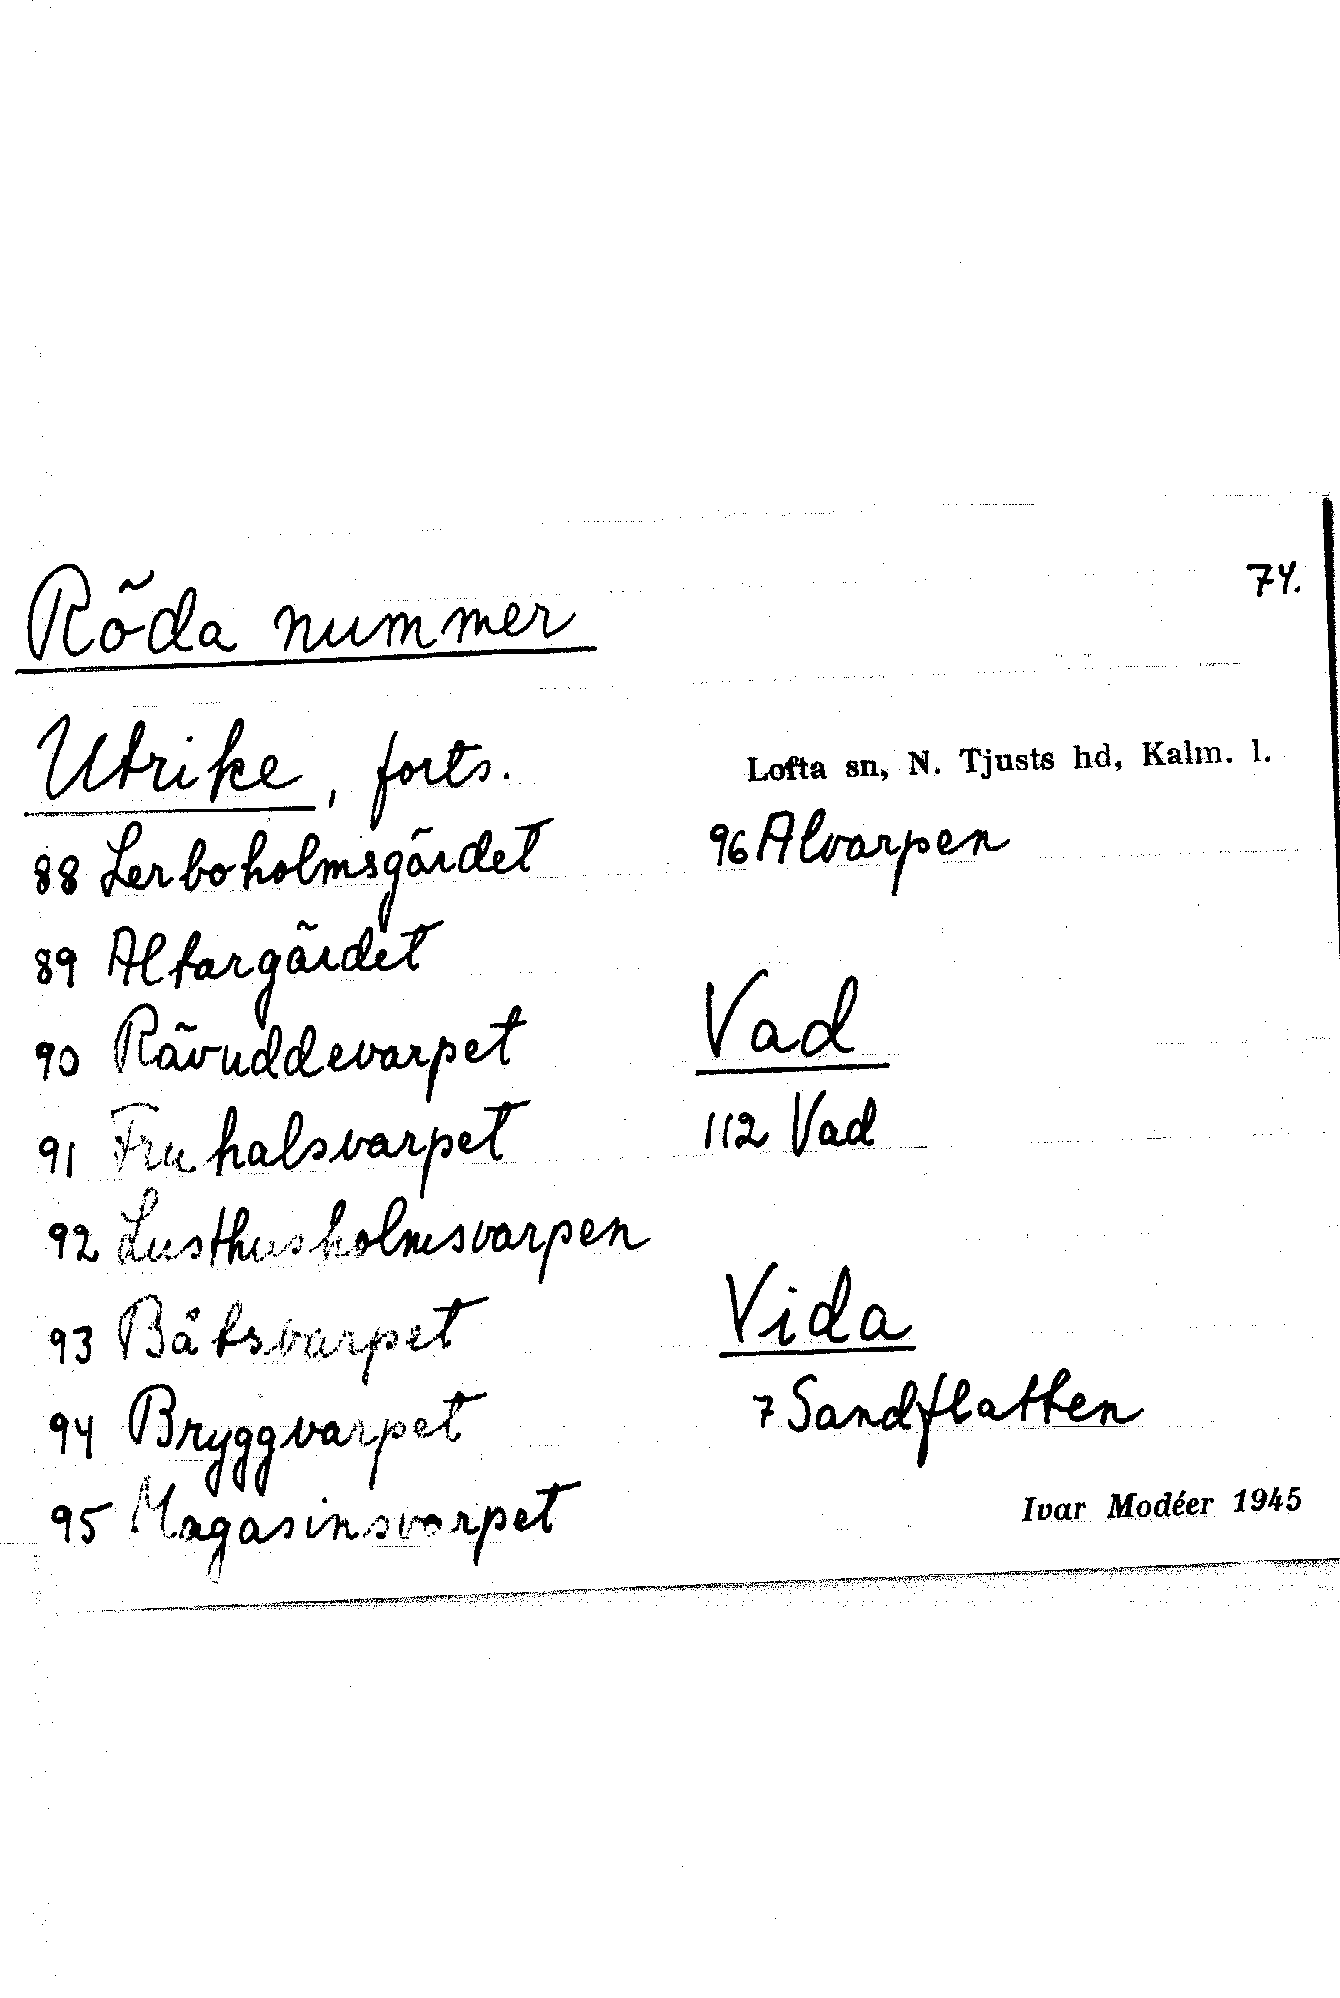 Röda nummer
74.
Utrike, forts.
Lofta sn, N. Tjusts hd, Kalm. l.
88 Lerboholmsgärdet
89 Altargärdet
90 Rävuddevarpet
91 Fruhalsvarpet
92 Lusthusholmsvarpen
93 Båtsvarpet
94 Bryggvarpet
95 Magasinsvarpet
96 Alvarpen
Vad
112 Vad
Vida
7 Sandflatten
Ivar Modéer 1945